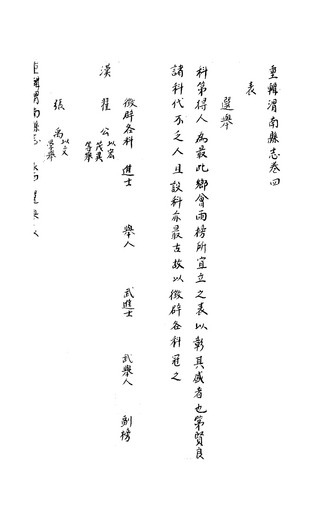 重輯渭南縣志卷四
表
選舉
科第得人為最此鄉會兩榜所宜立之表以彰其盛者也第賢良
諸科代不乏人且設科亦最古故以徵辟各科冠之
徵辟各科 進士 舉人 武進士 武舉人 副榜
漢 翟公以宏茂異等舉
張禹以文學舉
重輯渭南縣志